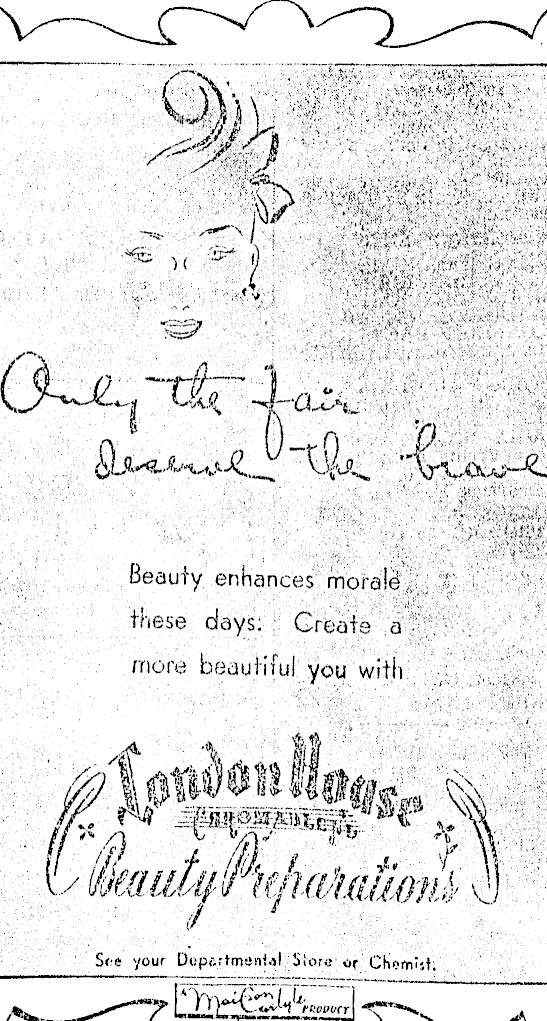 Only the fair
deserve the brave
Beauty enhances morale
these days. Create a
more beautiful you with
London House
Beauty Preparations
See your Departmental Store or Chemist.
A Maison Carlyle PRODUCT